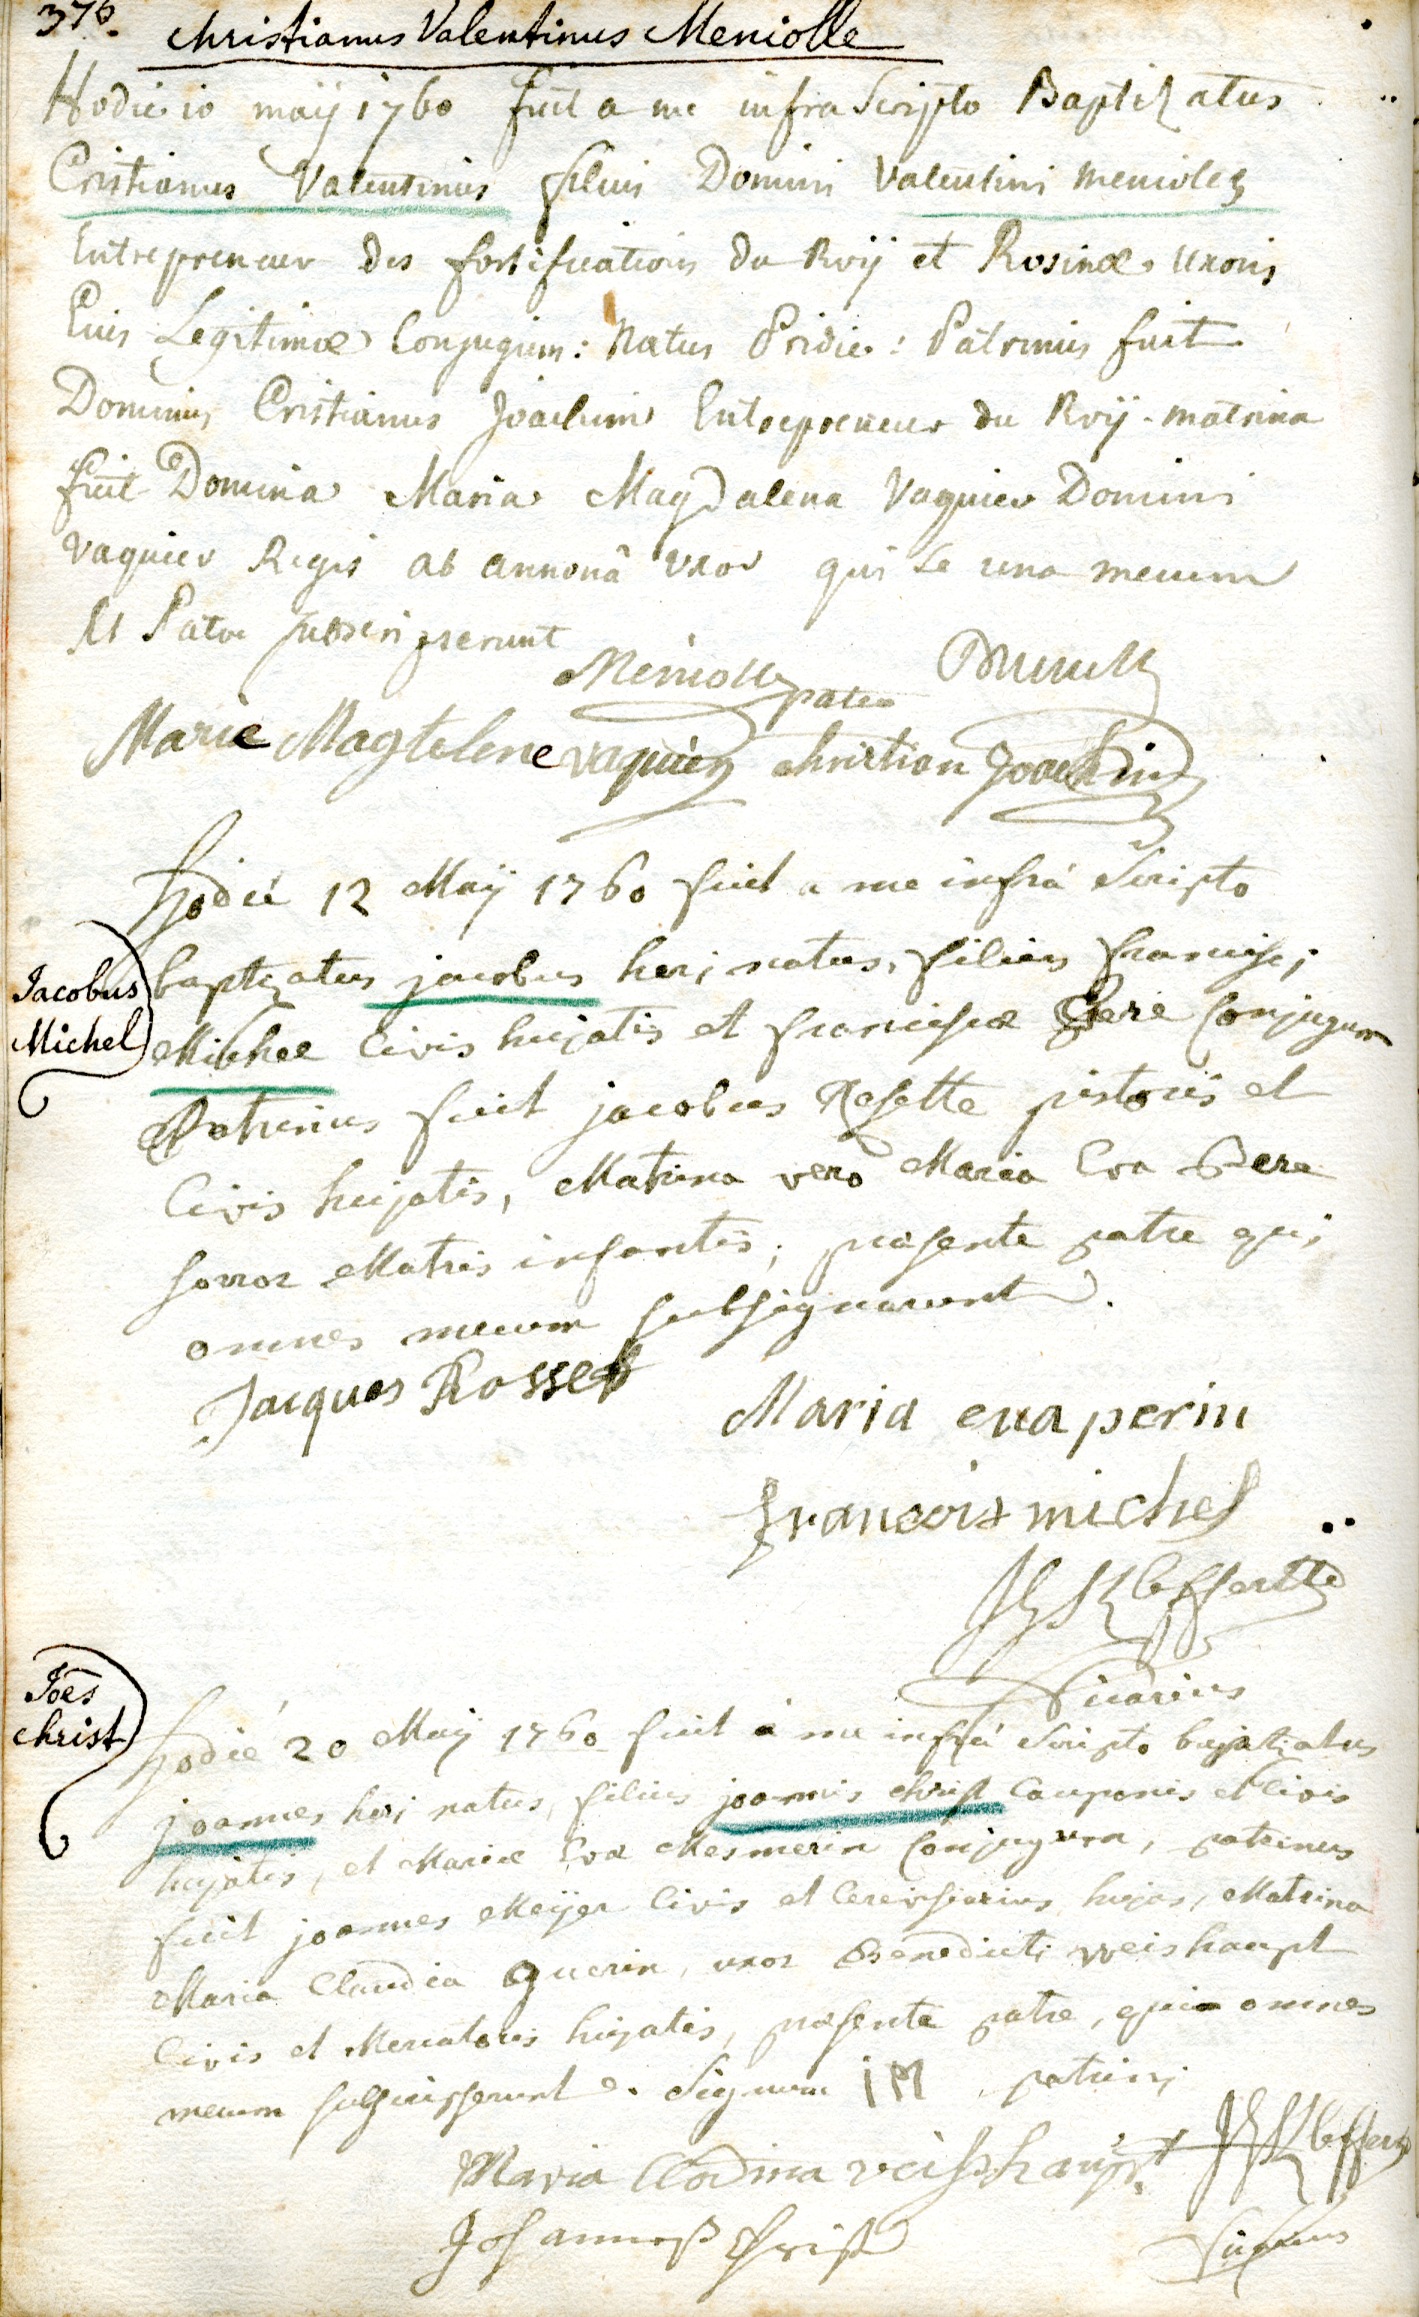 376. Christianus Valentinus Meniolle
Hodie 10 maÿ 1760 fuit a me infra Scripto Baptizatus
Cristianus Valentinus filius Domini Valentini meniolez
Entrepreneur des fortifications du Roÿ et Rosinæ uxoris
Eius Legitimæ Conjugum: Natus Pridie: Patrinus fuit
Dominus Cristianus Joachim Entrepreneur du Roÿ. matrina
fuit Domina Maria Magdalena Vaquier Domini
Vaquier Regis ab annonâ Uxor qui se una mecum
Et Patre subscripserunt
Meniolle pater
Marie Magtelene vaquier Christian Joachim
Hodié 12 Maÿ 1760 fuit a me infrá Scripto
Jacobus
Michel
baptizatus jacobus heri natus, filius francisci
Michel Civis hujatis et franciscæ Pere Conjugum
Patrinus fuit jacobus Rosette pistoris et
Civis hujatis, Matrina vero Maria Eva Pere
soror Matris infantis, præsente patre qui
omnes mecum subsignarunt.
Jacques Rosset
Maria eva perin
francois michel
Vicarius
Joes
Christ
Hodié 20 Maÿ 1760 fuit á me infrá Scripto baptizatus
joannes heri natus, filius joannis Christ Cauponis et Civis
hujatis, et Mariæ Evæ Mesmerin Conjugum, patrinus
fuit joannes Meÿer Civis et Cerevisiarius hujas, Matrina
Maria Claudia Guerin, uxor Benedicti weishaupt
Civis et Mercatoris hujatis, præsente patre, qui omnes
mecum subscripserunt. Signum IM patrini
Maria Clodina veishaupt
Johannes Christ
Vicarius